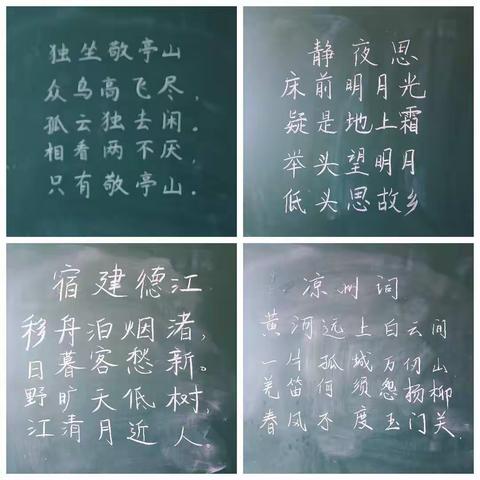 独坐敬亭山
众鸟高飞尽，
孤云独去闲．
相看两不厌，
只有敬亭山．
静夜思
床前明月光
疑是地上霜
举头望明月
低头思故乡
宿建德江
移舟泊烟渚，
日暮客愁新。
野旷天低树，
江清月近人．
凉州词
黄河远上白云间
一片孤城万仞山
羌笛何须怨扬柳
春风不度玉门关．